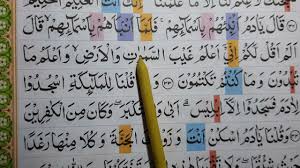 قَالَ يَٰٓـَٔادَمُ أَنۢبِئْهُم بِأَسْمَآئِهِمْ فَلَمَّآ أَنۢبَأَهُم بِأَسْمَآئِهِمْ قَالَ
أَلَمْ أَقُل لَّكُمْ إِنِّىٓ أَعْلَمُ غَيْبَ ٱلسَّمَٰوَٰتِ وَٱلْأَرْضِ وَأَعْلَمُ مَا
تُبْدُونَ وَمَا كُنتُمْ تَكْتُمُونَ ٣٣ وَإِذْ قُلْنَا لِلْمَلَٰٓئِكَةِ ٱسْجُدُوا۟
لِـَٔادَمَ فَسَجَدُوٓا۟ إِلَّآ إِبْلِيسَ أَبَىٰ وَٱسْتَكْبَرَ وَكَانَ مِنَ ٱلْكَٰفِرِينَ
وَقُلْنَا يَٰٓـَٔادَمُ ٱسْكُنْ أَنتَ وَزَوْجُكَ ٱلْجَنَّةَ وَكُلَا مِنْهَا رَغَدًا